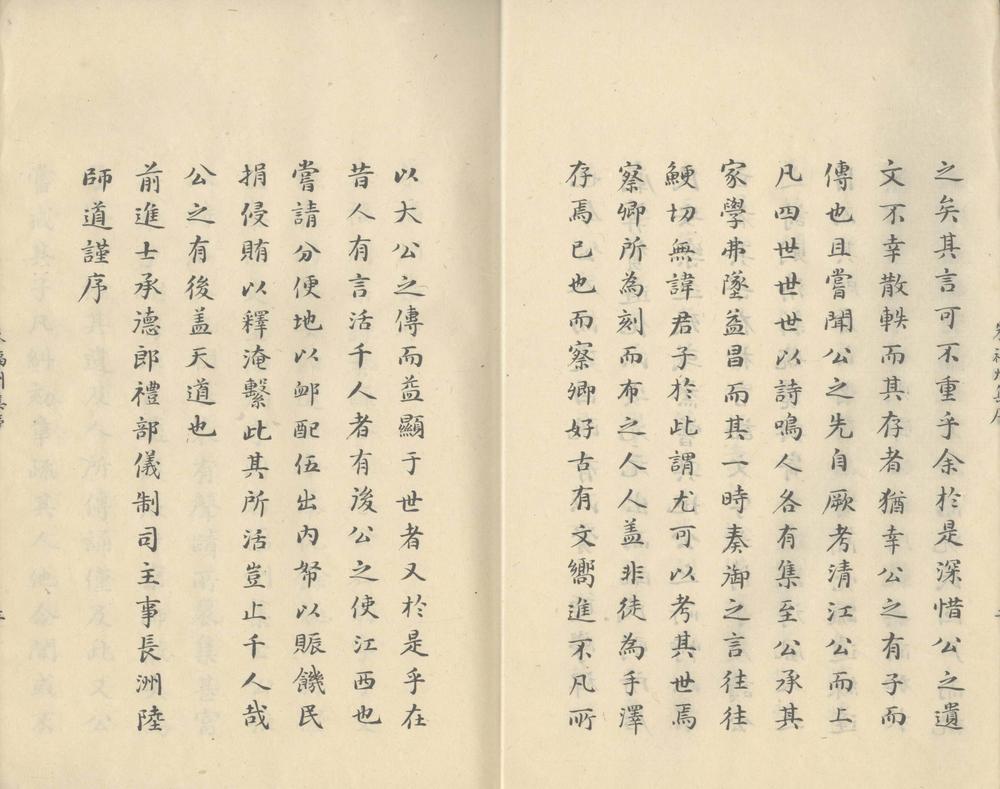 之矣其言可不重乎余於是深惜公之遺
文不幸散軼而其存者猶幸公之有子而
傳也且嘗聞公之先自厥考清江公而上
凡四世世世以詩鳴人各有集至公承其
家學弗墜益昌而其一時奏御之言往往
鯁切無諱君子於此謂尤可以考其世焉
察卿所為刻而布之人人盖非徒為手澤
存焉已也而察卿好古有文嚮進不凡所
以大公之傳而益顯于世者又於是乎在
昔人有言活千人者有後公之使江西也
嘗請分便地以䘏配伍出內帑以賑饑民
捐侵賄以釋淹繫此其所活豈止千人哉
公之有後盖天道也
前進士承德郎禮部儀制司主事長洲陸
師道謹序